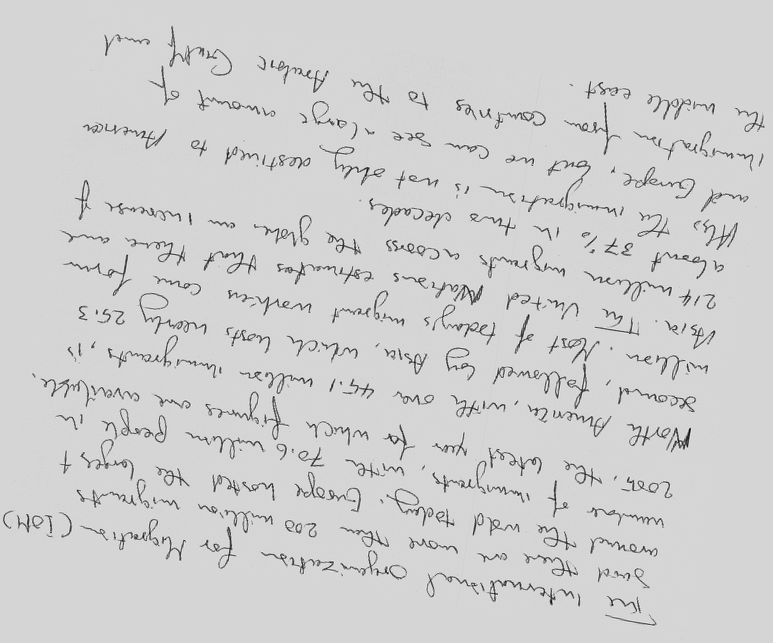 The International Organization for Migration (IOM)
said there are more than 200 million migrants
around the wold today. Europe hosted the larges t
number of immigrants, with 70.6 million people in
2005, the latest year for which figures are available.
North America, with over 45.1 million immigrants, is
second, followed by Asia, which hosts nearly 25.3
million. Most of today's migrant workers come form
Asia. The United Nations estimates that there are
214 million migrants across the globe, an increase of
about 37% in two decades.
Also the immigration is not only destined to America
and Europe, but we can see a large amount of
immigration from countries to the Arabic Gulf and
the middle east.